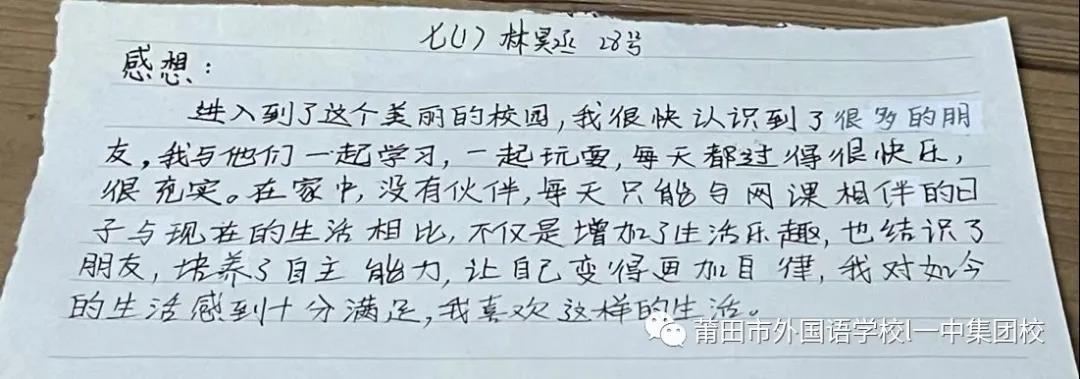 七(1) 林昊丞 28号
感想：
进入到了这个美丽的校园，我很快认识到了很多的朋
友，我与他们一起学习，一起玩耍，每天都过得很快乐，
很充实。在家中，没有伙伴，每天只能与网课相伴的日
子与现在的生活相比，不仅是增加了生活乐趣，也结识了
朋友，培养了自主能力，让自己变得更加自律，我对如今
的生活感到十分满足，我喜欢这样的生活。
莆田市外国语学校l一中集团校